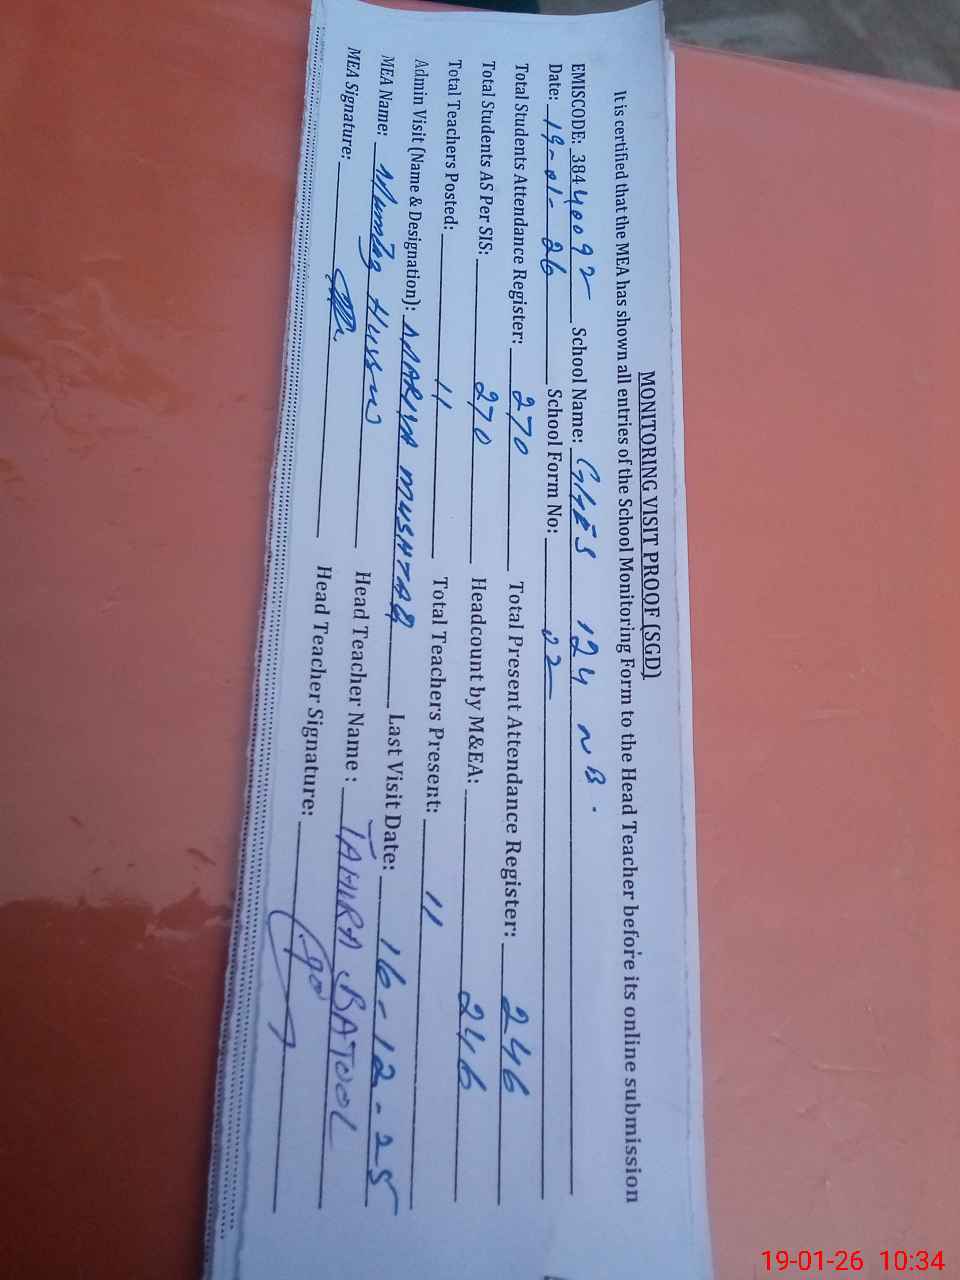 MONITORING VISIT PROOF (SGD)
It is certified that the MEA has shown all entries of the School Monitoring Form to the Head Teacher before its online submission
EMISCODE: 38440092 School Name: GGES 124 NB.
Date: 19-01-26 School Form No: 02
Total Students Attendance Register: 270 Total Present Attendance Register: 246
Total Students AS Per SIS: 270 Headcount by M&EA: 246
Total Teachers Posted: 11 Total Teachers Present: 11
Admin Visit (Name & Designation): MUSHTAQ Last Visit Date: 16-12-25
MEA Name: Mumtaz Hussain Head Teacher Name : TAHIRA BATOOL
MEA Signature: Head Teacher Signature:
19-01-26 10:34